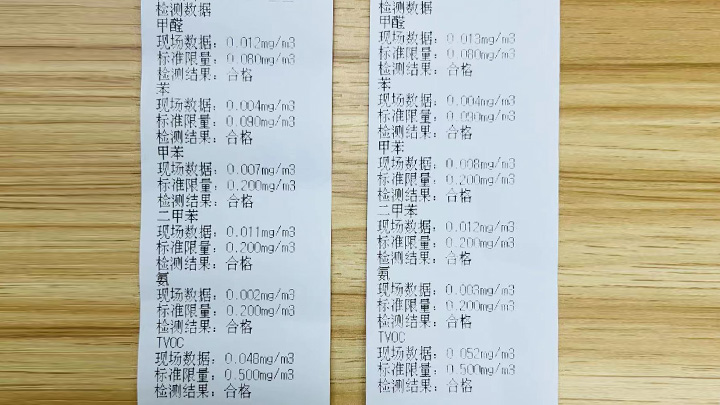 检测数据
甲醛
现场数据：0.012mg/m3
标准限量：0.080mg/m3
检测结果：合格
苯
现场数据：0.004mg/m3
标准限量：0.090mg/m3
检测结果：合格
甲苯
现场数据：0.007mg/m3
标准限量：0.200mg/m3
检测结果：合格
二甲苯
现场数据：0.011mg/m3
标准限量：0.200mg/m3
检测结果：合格
氨
现场数据：0.002mg/m3
标准限量：0.200mg/m3
检测结果：合格
TVOC
现场数据：0.048mg/m3
标准限量：0.500mg/m3
检测结果：合格
检测数据
甲醛
现场数据：0.013mg/m3
标准限量：0.080mg/m3
检测结果：合格
苯
现场数据：0.004mg/m3
标准限量：0.090mg/m3
检测结果：合格
甲苯
现场数据：0.008mg/m3
标准限量：0.200mg/m3
检测结果：合格
二甲苯
现场数据：0.012mg/m3
标准限量：0.200mg/m3
检测结果：合格
氨
现场数据：0.003mg/m3
标准限量：0.200mg/m3
检测结果：合格
TVOC
现场数据：0.052mg/m3
标准限量：0.500mg/m3
检测结果：合格